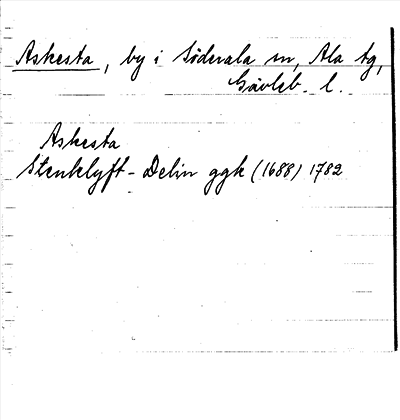 Askesta, by i Söderala sn, Ala tg,
Gävleb. l.
Askesta
Stenklyft-Delin ggk (1688) 1782